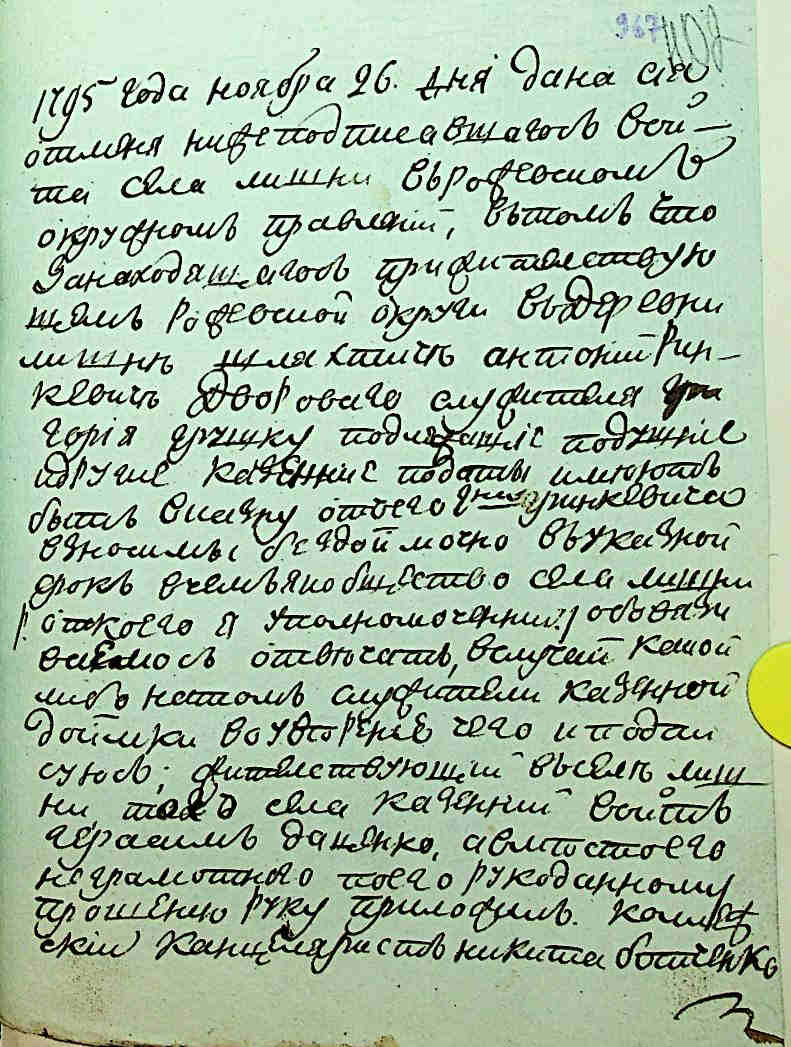 967
1795 года ноября 26. дня дана сия
отменя нижеподписавшагось вой-
та села лишни върожевскомъ
окружномъ правлений, вътомъ что
Занаходящагось прижителствую
щемъ рожевской округи въдеревни
лишнѣ шляхтичь антоній Рин-
кевичь дворового служителя гри
горія грушку подлежащіе подушніе
идругіе казенніе подати имѣютъ
быть вказну отъего гна ринкевича
взносимы бездоймочно въуказной
срокъ вчемъя иобщество села лишни
/: откоего я уполномоченний :/ обовязи
ваемось отвѣчать, вслучай какой
либо натомъ служители казенной
доймки воувѣреніе чего иподпи
суюсь; жителствующій въселѣ лиш
ни, того села казенній войтъ
герасимъ даценко, авместоего
неграмотного поего рукоданному
прошению руку приложилъ. Коллеж
скій Канцеляристъ никита ботченко